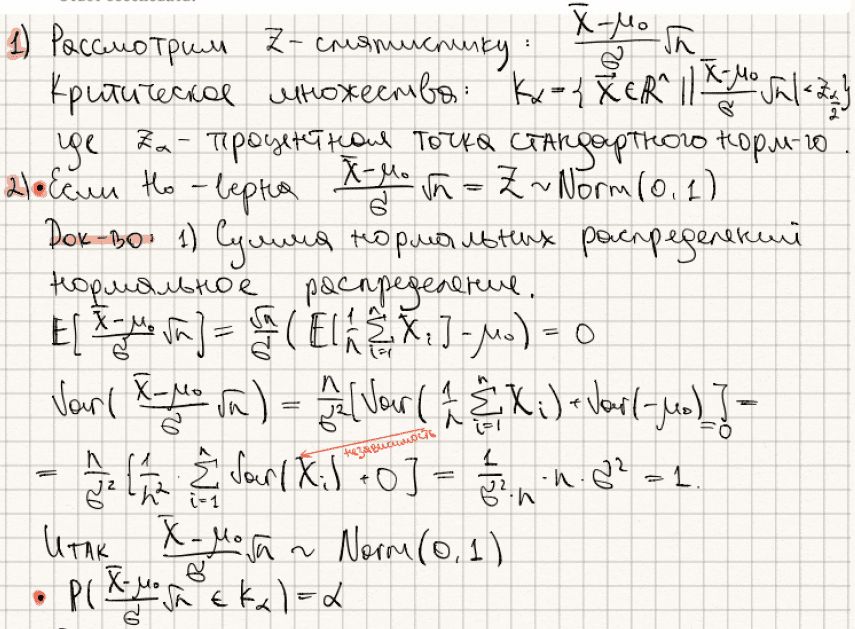 1) Рассмотрим Z-статистику: (X̄-μ₀)/σ √n
Критическое множество: K_α = { X̄ ∈ ℝⁿ || (X̄-μ₀)/σ √n | < z_{α/2} }
где z_α - процентная точка стандартного норм-го.
2) • Если H₀ - верна (X̄-μ₀)/σ √n = Z ~ Norm(0,1)
Док-во: 1) Сумма нормальных распределений
нормальное распределение.
E[ (X̄-μ₀)/σ √n ] = √n/σ ( E[ 1/n ∑_{i=1}^{n} X̄_i ] - μ₀ ) = 0
Var( (X̄-μ₀)/σ √n ) = n/σ² [ Var( 1/n ∑_{i=1}^{n} X_i ) + Var(-μ₀) ] =
=0
независимость
= n/σ² [ 1/n² · ∑_{i=1}^{n} Var( X_i ) + 0 ] = 1/(σ²·n) · n · σ² = 1.
Итак (X̄-μ₀)/σ √n ~ Norm(0,1)
• P( (X̄-μ₀)/σ √n ∈ K_α ) = α